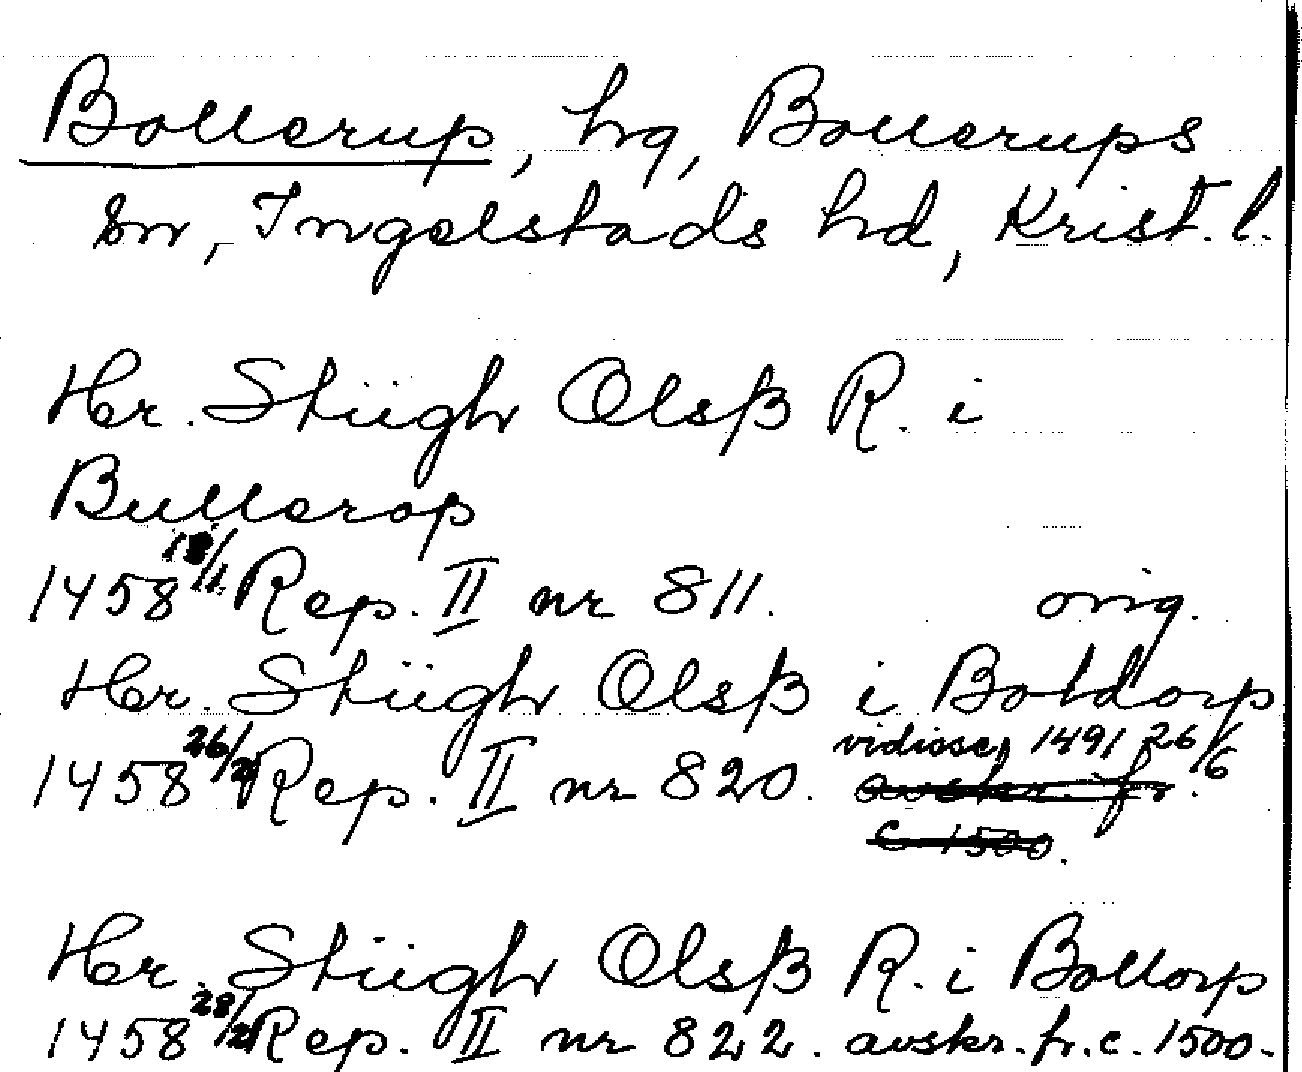 Bollerup, hg, Bollerups
sn, Ingelstads hd, Krist. l.
Her. Stiigh Olsß R. i
Bullerop
1458 18/1 Rep. II nr 811. orig.
Her. Stiigh Olsß i Boldorp
1458 26/2 Rep. II nr 820. vidisse, 1491 26/6
avskr. fr.
c 1500.
Her. Stiigh Olsß R. i Bollorp
1458 28/2 Rep. II nr 822. avskr. fr. c. 1500.